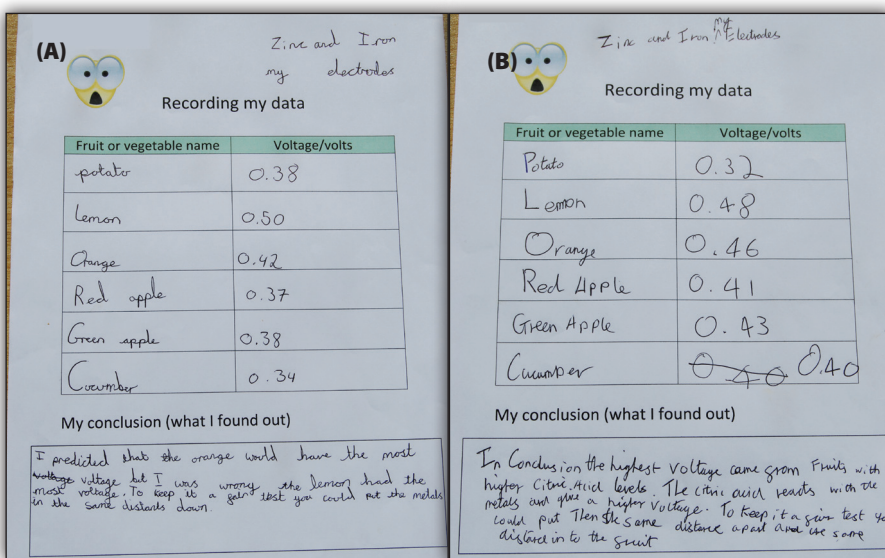 (A)
Zinc and Iron
my electrodes
Recording my data
Fruit or vegetable name Voltage/volts
potato 0.38
Lemon 0.50
Orange 0.42
Red apple 0.37
Green apple 0.38
Cucumber 0.34
My conclusion (what I found out)
I predicted that the orange would have the most
voltage voltage but I was wrong the lemon had the
most voltage. To keep it a test you could put the metals
in the same down.
(B)
Zinc and Iron my Electrodes
Recording my data
Fruit or vegetable name Voltage/volts
Potato 0.32
Lemon 0.48
Orange 0.46
Red Apple 0.41
Green Apple 0.43
Cucumber 0.40 0.40
My conclusion (what I found out)
In Conclusion the highest voltage came from Fruits with
higher Citric Acid levels. The citric acid reacts with the
metals and give a higher voltage. To keep it a test
could put the same distance apart and the same
distance in to the fruit